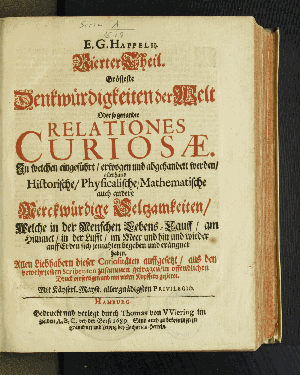 E. G. HAPPELII.
Vierter Theil.
Grösseste
Denkwürdigkeiten der Welt
Oder so genandte
RELATIONES
CURIOSÆ.
In welchen eingeführt / erwogen und abgehandelt werden /
allerhand
Historische / Physicalische / Mathematische
auch andere
Merckwürdige Seltzamkeiten /
Welche in der Menschen Lebens-Lauff / am
Himmel / in der Lufft / im Meer und hin und wieder
auff Erden sich jemahlen begeben und eräugnet
haben.
Allen Liebhabern dieser Curiosiäten auffgesetzt / aus den
Scribenten zusammen getragen / in öffentlichen
Druck
Mit Käyserl. Mayst. allergnädigsten PRIVILEGIO.
HAMBURG
Gedruckt und verlegt durch Thomas von Wiering im
güldnen A, B, C, bey der Börse 1689. Sind auch